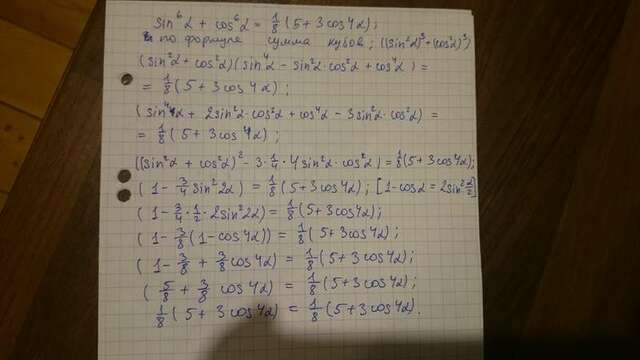 sin⁶α + cos⁶α = 1/8 (5 + 3 cos 4α);
по формуле сумма кубов; ((sin²α)³ + (cos²α)³)
(sin²α + cos²α)(sin⁴α - sin²α · cos²α + cos⁴α) =
= 1/8 (5 + 3 cos 4α);
(sin⁴α + 2sin²α · cos²α + cos⁴α - 3sin²α · cos²α) =
= 1/8 (5 + 3 cos 4α);
((sin²α + cos²α)² - 3 · 1/4 · 4 sin²α · cos²α) = 1/8 (5 + 3 cos 4α);
(1 - 3/4 sin²2α) = 1/8 (5 + 3 cos 4α); [1 - cos α = 2sin² α/2]
(1 - 3/4 · 1/2 · 2sin²2α) = 1/8 (5 + 3 cos 4α);
(1 - 3/8 (1 - cos 4α)) = 1/8 (5 + 3 cos 4α);
(1 - 3/8 + 3/8 cos 4α) = 1/8 (5 + 3 cos 4α);
(5/8 + 3/8 cos 4α) = 1/8 (5 + 3 cos 4α);
1/8 (5 + 3 cos 4α) = 1/8 (5 + 3 cos 4α).